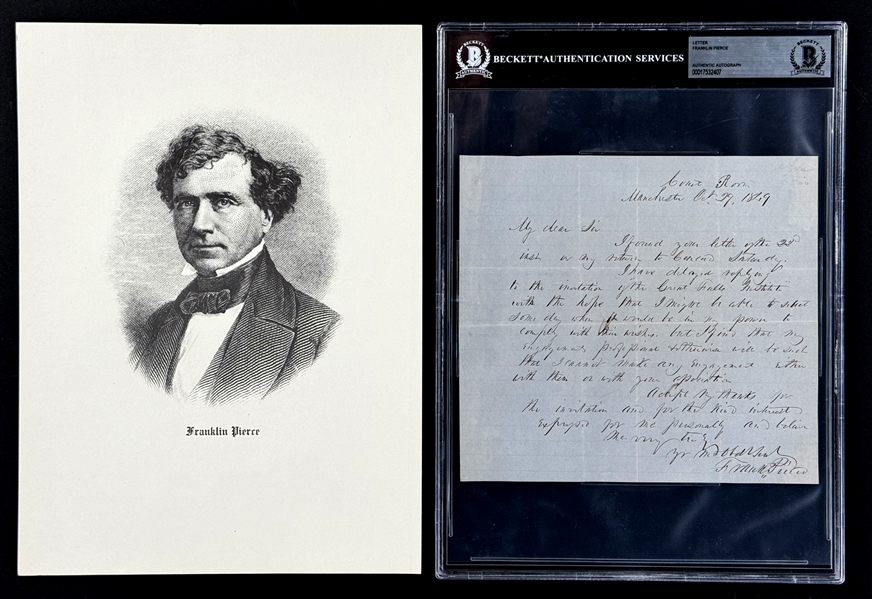 Franklin Pierce
BECKETT AUTHENTICATION SERVICES
BECKETT
B
AUTHENTIC
LETTER
FRANKLIN PIERCE
AUTHENTIC AUTOGRAPH
00017532407
BECKETT
B
AUTHENTIC
Court Room
Manchester Oct. 29, 1849
My dear Sir
I found your letter of the 23d
inst on my return to Concord Saturday.
I have delayed replying
to the invitation of the Great Falls Institute
with the hope that I might be able to select
some day when it would be in my power to
comply with their wishes. but I find that my
engagements professional & otherwise will be such
that I cannot make any engagement either
with them or with your association
Accept my thanks for
the invitation and for the kind interest
expressed for me personally and believe
me very truly
yr
Frank. Pierce